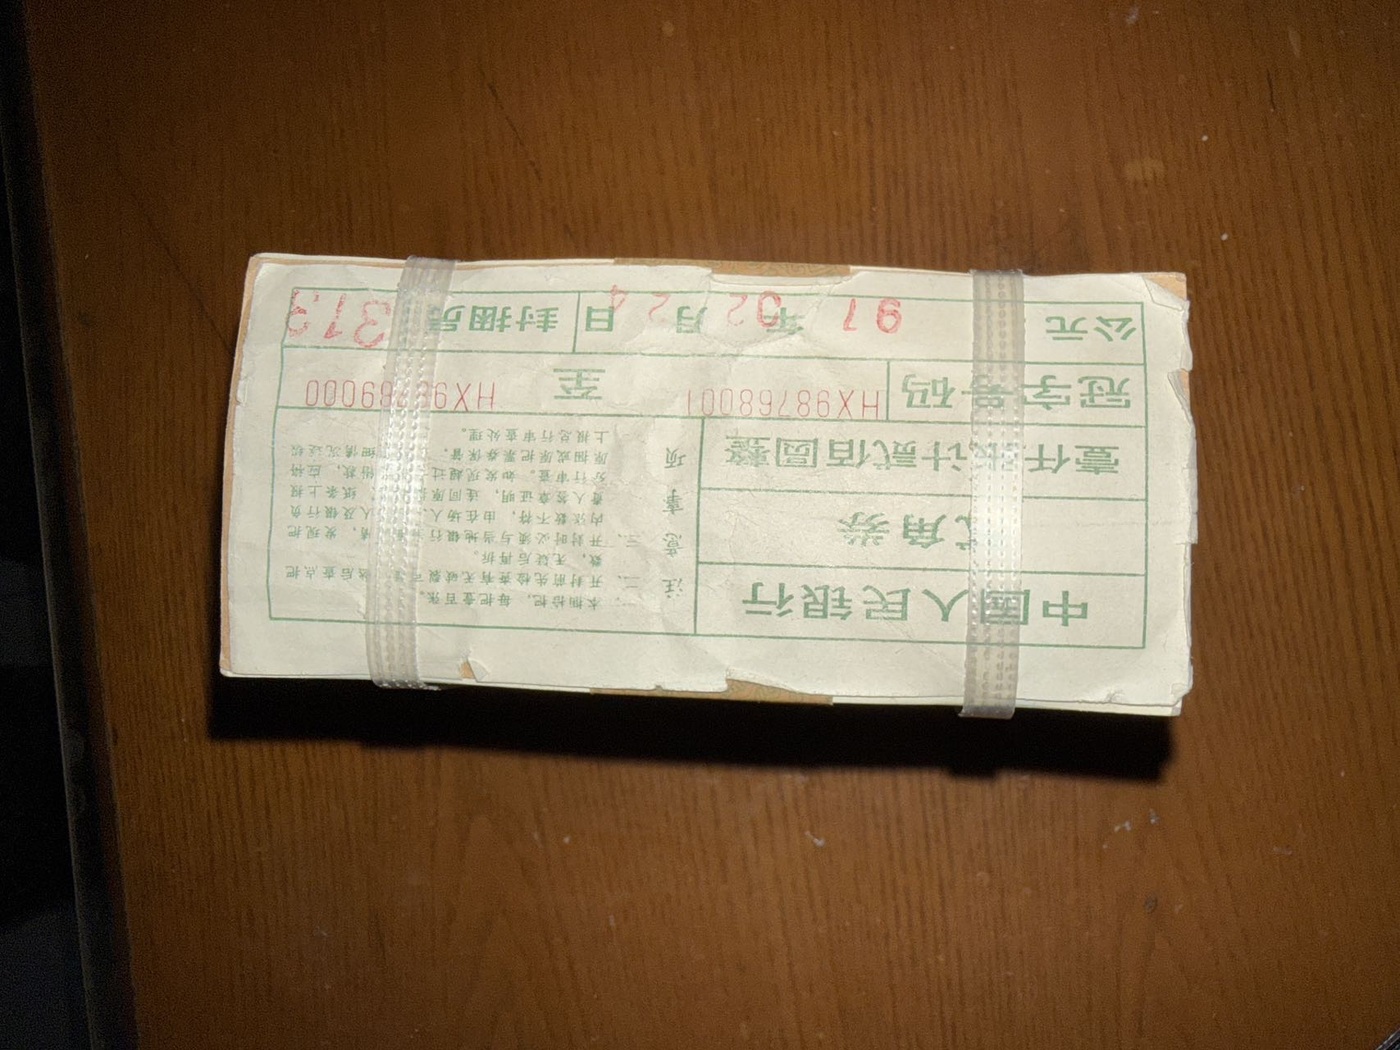 中国人民银行
贰角券
壹仟张计贰佰圆整
注意事项
一、本捆拾把，每把壹百张。
二、开封前先检查有无破裂可疑，然后查点把
数，无疑后再拆。
三、开封时必须与当地银行 情，发现把
内张数不符，由在场人 人及银行负
责人签章证明，连同原 纸条上报
分行审查。如发现超过 件款，应将
原捆或原把票券保管， 细情况迅报
上报总行审查处理。
冠字号码 HX98768001 至 HX98769000
公元 97 年 02 月 24 日 封捆员 313